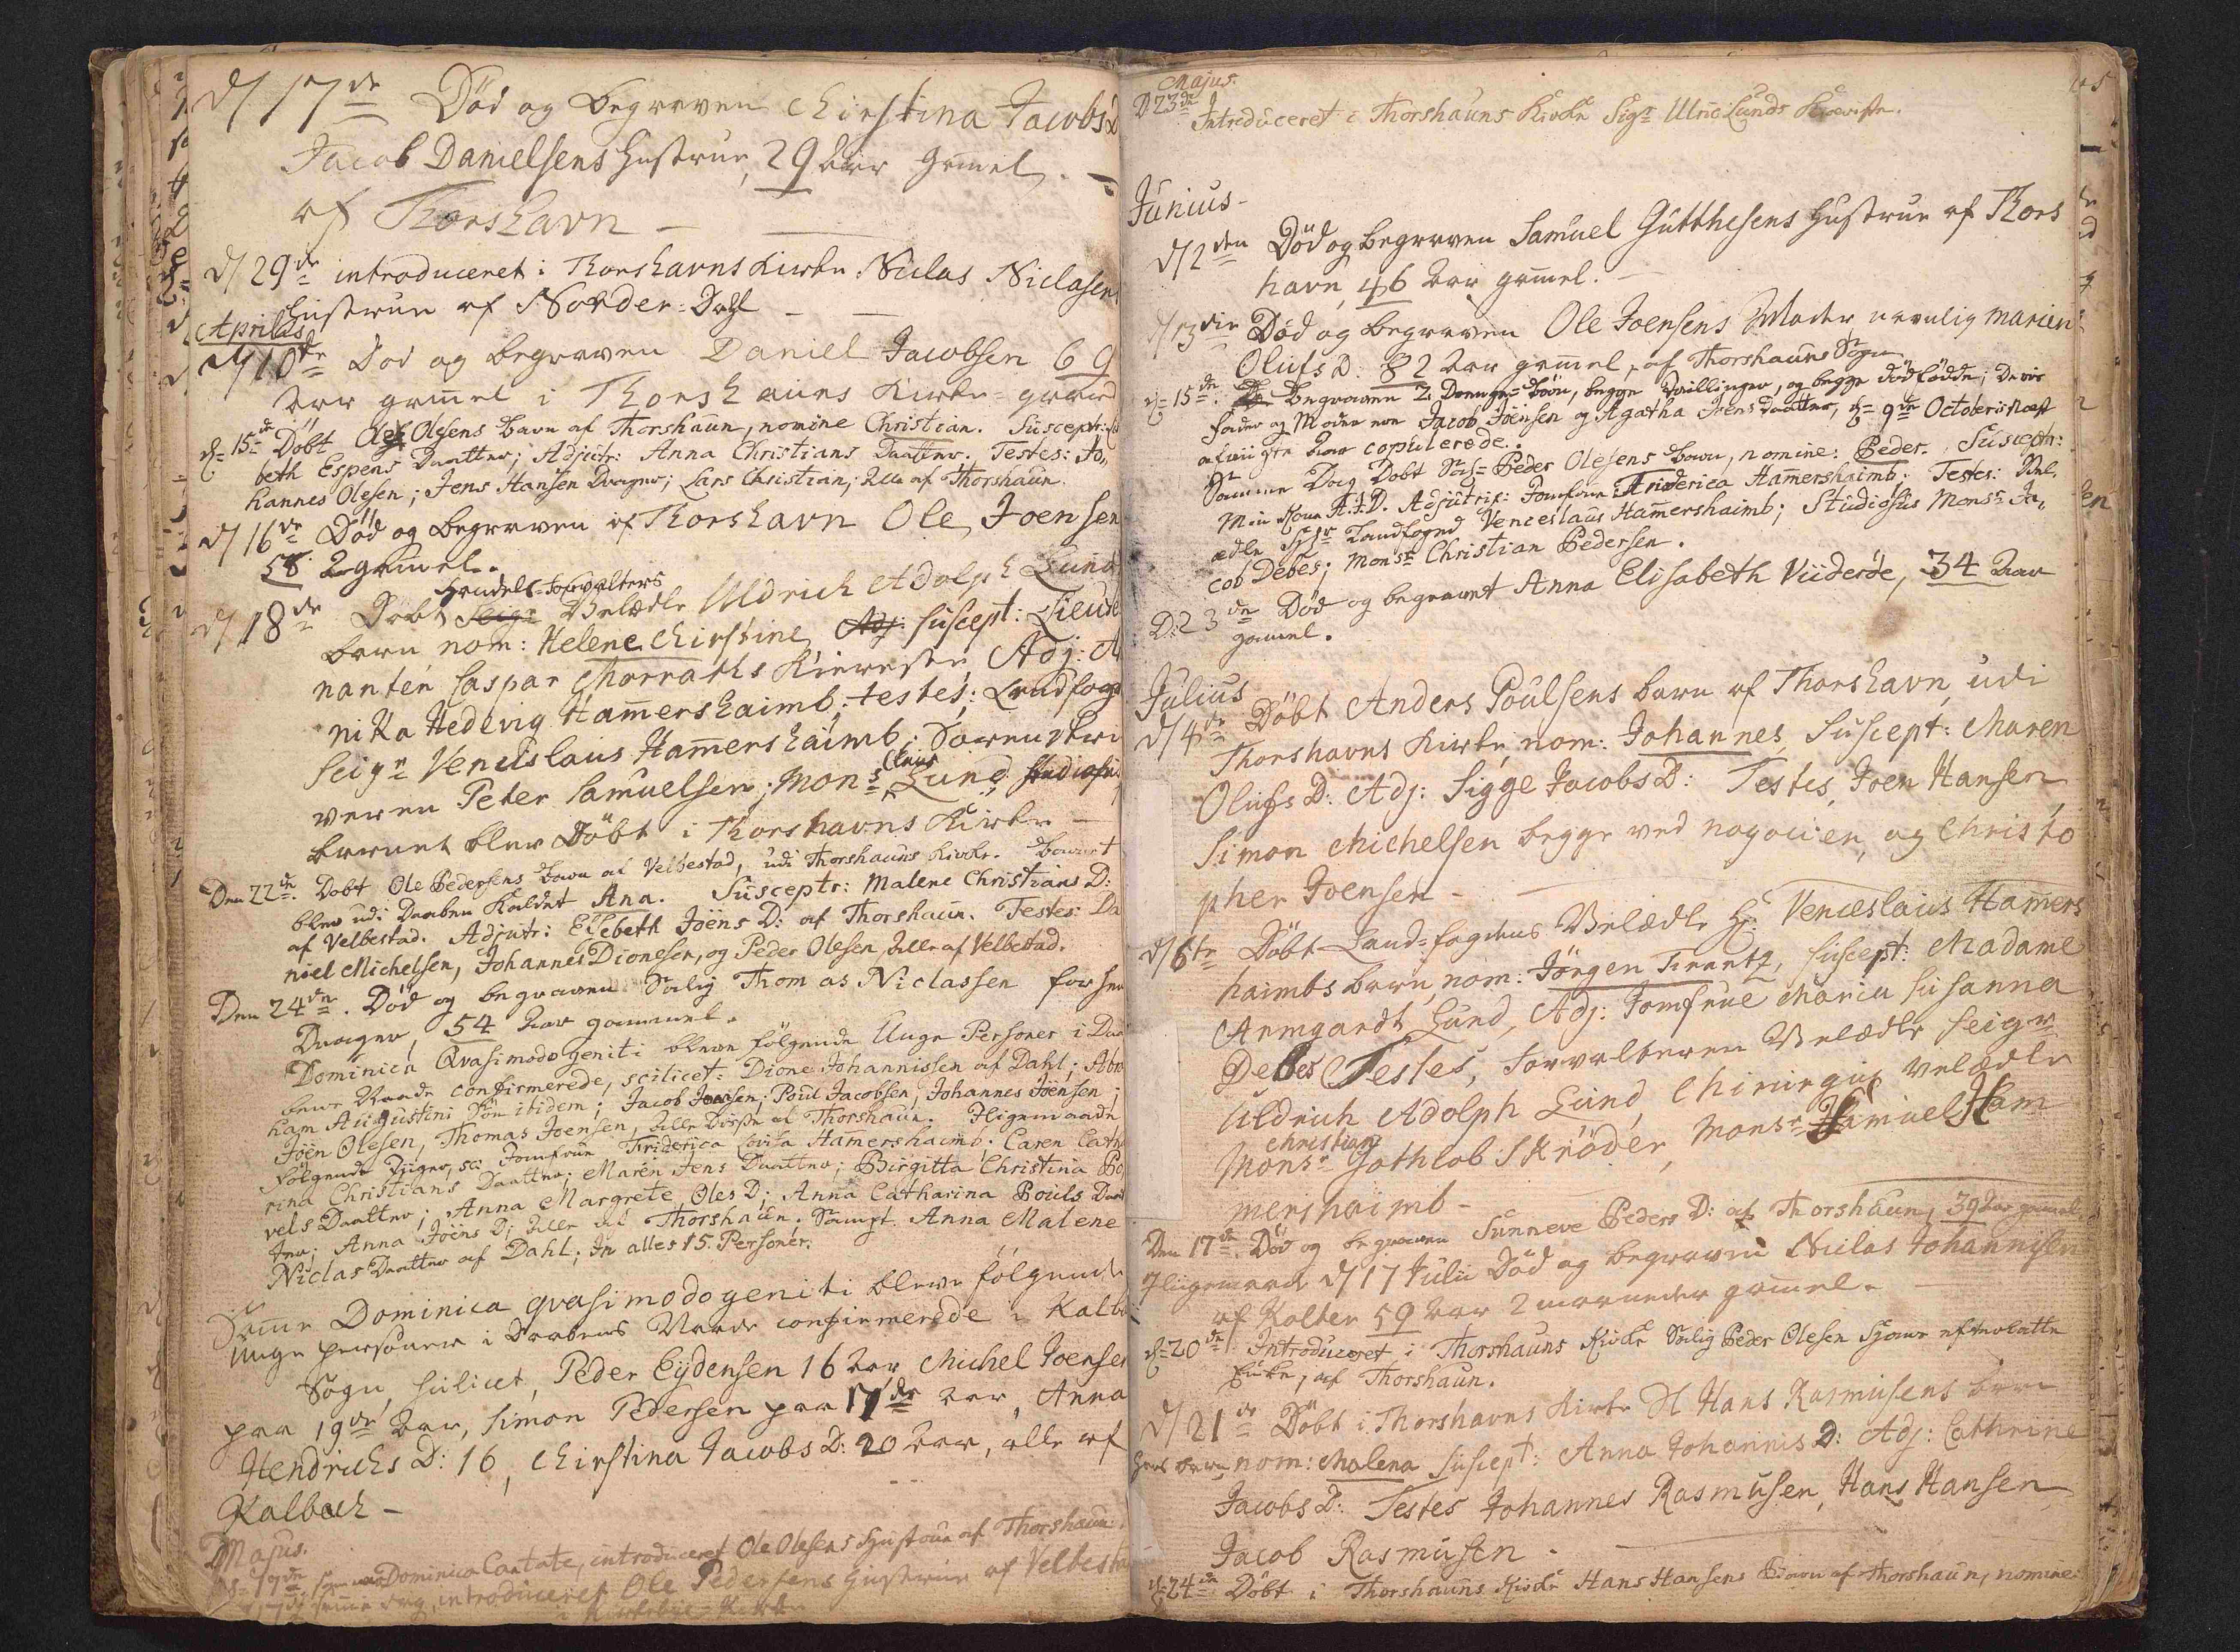 d/ 17de Död og begraven Chirstina Jacobs D
Jacob Danielsens Hustrue, 29 aar gamel
af Thorshavn
d/ 29de introduceret i Thorshavns Kirke Niclas Niclasens
Hustrue af Norder-Dahl
Aprilis
d/ 10de Död og begraven Daniel Jacobsen 69
aar gamel i Thorshauns Kirke-gaard
d= 15de Döbt Ole Olsens barn af Thorshaun, nomine Christian. Susceptr: Eli
beth Espens Daatter; Adjutr: Anna Christians Daatter. Testes: Jo„
hannes Olesen; Jens Hansen Drager; Lars Christian; alle af Thorshaun.
d/ 16de Död og begraven af Thorshavn Ole Joensen
58 gamel.
Handels-Forvalters
d/ 18de Döbt Seigr Velædle Uldrich Adolph Lund
barn nom: Helene Chirstine, Adj: suscept: Lieute
nanten Caspar Morraths Kiereste, Adj: A
nika Hedevig Hamershaimb; testes: Landfoge
Seigr Venceslaus Hamershaimb: Sorenskri
veren Peter Samuelsen; Mons: Claus Lund Studiosus
barnet blev Döbt i Thorshavns Kirke
Den 22de. Döbt Ole Pedersens barn af Velbestad, udi Thorshauns Kirke. barnet
blev udi Daaben kaldet Ana. Susceptr: Malene Christians D:
af Velbestad. Adjutr: Elsebeth Jöens D: af Thorshaun. Testes: Da
niel Michelsen, Johannes Dionesen, og Peder Olesen, alle af Velbestad.
Den 24de. Död og begraven Salig Thomas Niclassen forhen
Drager, 54 Aar gammel.
Dominica Qvasimodogeniti bleve fölgende Unge Personer i Daa
bens Naade confirmerede, scilicet: Dione Johannissen af Dahl; Abra
ham Augustini Sön ibidem; Jacob Jensen; Poul Jacobsen, Johannes Jöensen;
Jöen Olesen, Thomas Joensen, alle Disse af Thorshaun. Iligemaade
Fölgende Piiger, sc: Jomfrue Friderica Lovisa Hamershaimb; Caren Catha
rina Christians Daatter; Maren Jens Daatter; Birgitta Christina Po
vels Daatter; Anna Margrete Oles D; Anna Catharina Pouls Daat
ter; Anna Jöens D; alle af Thorshaun. Sampt Anna Malene
Niclas Daatter af Dahl; In alles 15. Personer.
Same Dominica qvasimodogeniti bleve fölgende
unge personer i Daabens Naade confirmerede i Kalba
Sogn, scilicet, Peder Eydensen 16 aar, Michel Joensen
paa 19de aar, Simon Pedersen paa 17de aar, Anna
Hendrichs D: 16, Chirstina Jacobs D: 20 aar, alle af
Kalbach
Majus.
d= 17de, som var Dominica Cantate, introduceret Ole Olesens Hustrue af Thorshaun.
17de samme dag, introduceret Ole Pedersens Hustrue af Velbesta
i Kirkebye-Kirke
45
Majus.
D 23de
Introduceret i Thorshauns Kirke Sigr Ulric Lunds Kiereste.
Junius
d/ 2den Död og begraven Samuel Gutthesens Hustrue af Thors
havn, 46 aar gamel.
d/ 13die Död og begraven Ole Joensens Moder, navnlig Marien
Olufs D: 82 aar gamel, af Thorshauns Sogn
d= 15de. Begraven 2 Drenge-Börn, begge Tvillinger, og begge dödfödde; Deris
Fader og Moder ere Jacob Jöensen og Agatha Jens Daatter, d= 9de Octobris næst
afvigte Aar copulerede.
Samme Dag Döbt Sal= Peder Olesens barn, nomine: Peder. Susceptr:
Min Kone A.J.D. Adjutrix: Jomfrue Friderica Hamershaimb; Testes: Vel.
ædle Sigr Landfoged Venceslaus Hamershaimb; Studiosus Monsr Ja„
cob Debes; Monsr Christian Pedersen.
D: 23de Död og begravet Anna Elisabeth Viideröe, 34 Aar
gamel.
Julius
d/ 4de Döbt Anders Poulsens barn af Thorshavn, udi
Thorshavns Kirke, nom: Johannes, suscept: Maren
Olufs D: Adj: Sigge Jacobs D: Testes, Joen Hansen
Simon Michelsen begge ved nogocien, og Christo
pher Joensen
d/ 6te Döbt Land-fogdens Velædle Hr. Venceslaus Hamers
haimbs barn, nom: Jörgen Frantz, suscept: Madame
Armgardt Lund, Adj: Jomfrue Maria Susanna
Debes Testes, Forvalteren Velædle Seigr
Uldrich Adolph Lund, Chirurgus velædle
Monsr Christian Gothlob Skröder, Monsr Samuel Ham
mershaimb
Den 17de. Död og begraven Sunneve Peders D: af Thorshaun, 39 Aar gamel.
Iligemaade d/ 17 Julii Död og begraven Niclas Johannisen
af Kolter 59 aar 2 maaneder gamel.
d= 20de Introduceret i Thorshauns Kirke Salig Peder Olesen efterlatte
Enke, af Thorshaun.
d/ 21de Döbt i Thorshavns Kirke Hans Rasmusens barn
Hans barn, nom: Malena suscept: Anna Johannis D: Adj: Cathrine
Jacobs D: Testes Johannes Rasmusen, Hans Hansen
Jacob Rasmusen
d= 24de Döbt i Thorshauns Kirke Hans Hansens Barn af Thorshaun, nomine: